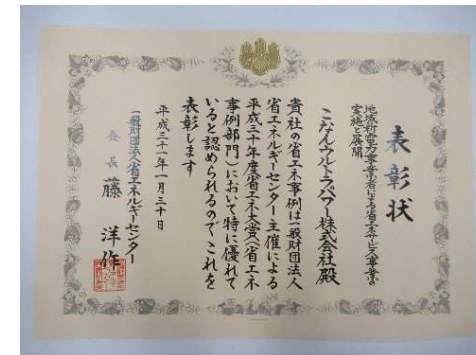 表彰状
地域新電力事業者による省エネサービス事業の
実施と展開
こなんウルトラパワー株式会社殿
貴社の省エネ事例は一般財団法人
省エネルギーセンター主催による
平成三十年度省エネ大賞(省エネ
事例部門)において特に優れて
いると認められるのでこれを
表彰します
平成三十一年一月三十日
一般財団法人省エネルギーセンター
会長 藤 洋作